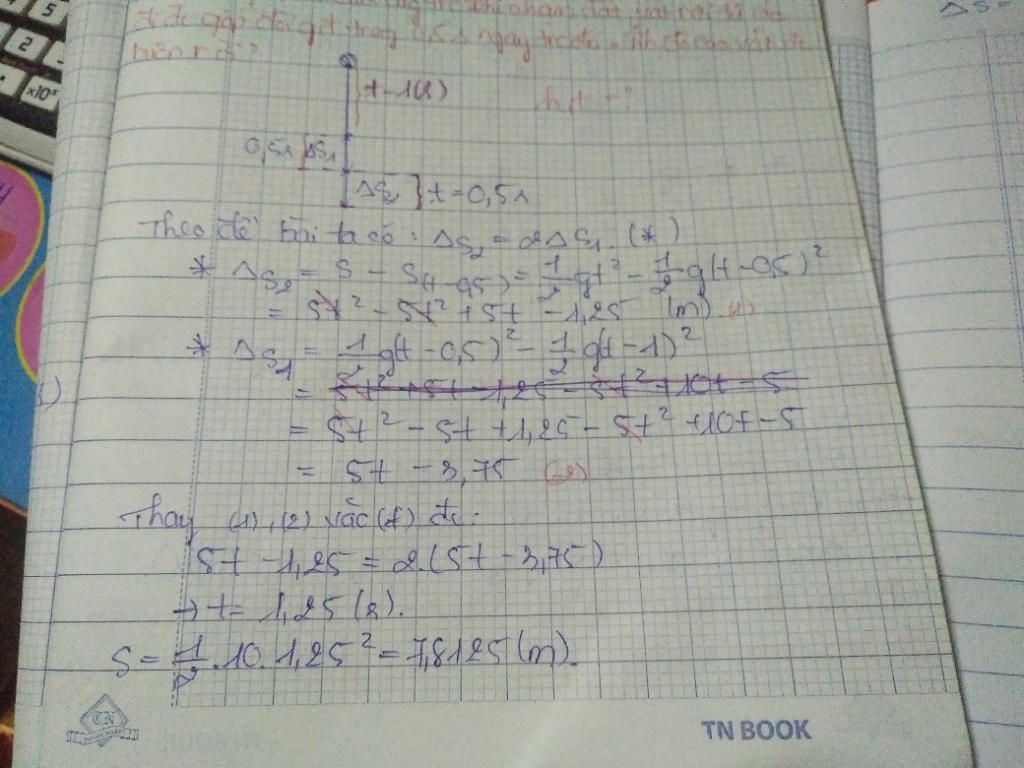 đề gấp đôi gđ trong 0,5s ngay trc đó. Tính độ cao vật đc
t-1(s)
h, t = ?
0,5s [ΔS₁
[ΔS₂] t = 0,5s
Theo đề bài ta có: ΔS₂ = 2ΔS₁. (*)
* ΔS₂ = S - S(t-0,5) = 1/2 gt² - 1/2 g(t-0,5)²
= 5t² - 5t² + 5t - 1,25 (m) (1)
* ΔS₁ = 1/2 g(t-0,5)² - 1/2 g(t-1)²
= 5t² + 5t - 1,25 - 5t² + 10t - 5
= 5t² - 5t + 1,25 - 5t² + 10t - 5
= 5t - 3,75 (2)
Thay (1), (2) vào (*) đc:
5t - 1,25 = 2.(5t - 3,75)
→ t = 1,25 (s).
S = 1/2 .10. 1,25² = 7,8125 (m).
TN
TN BOOK
ΔS =
5
2
×10ˣ